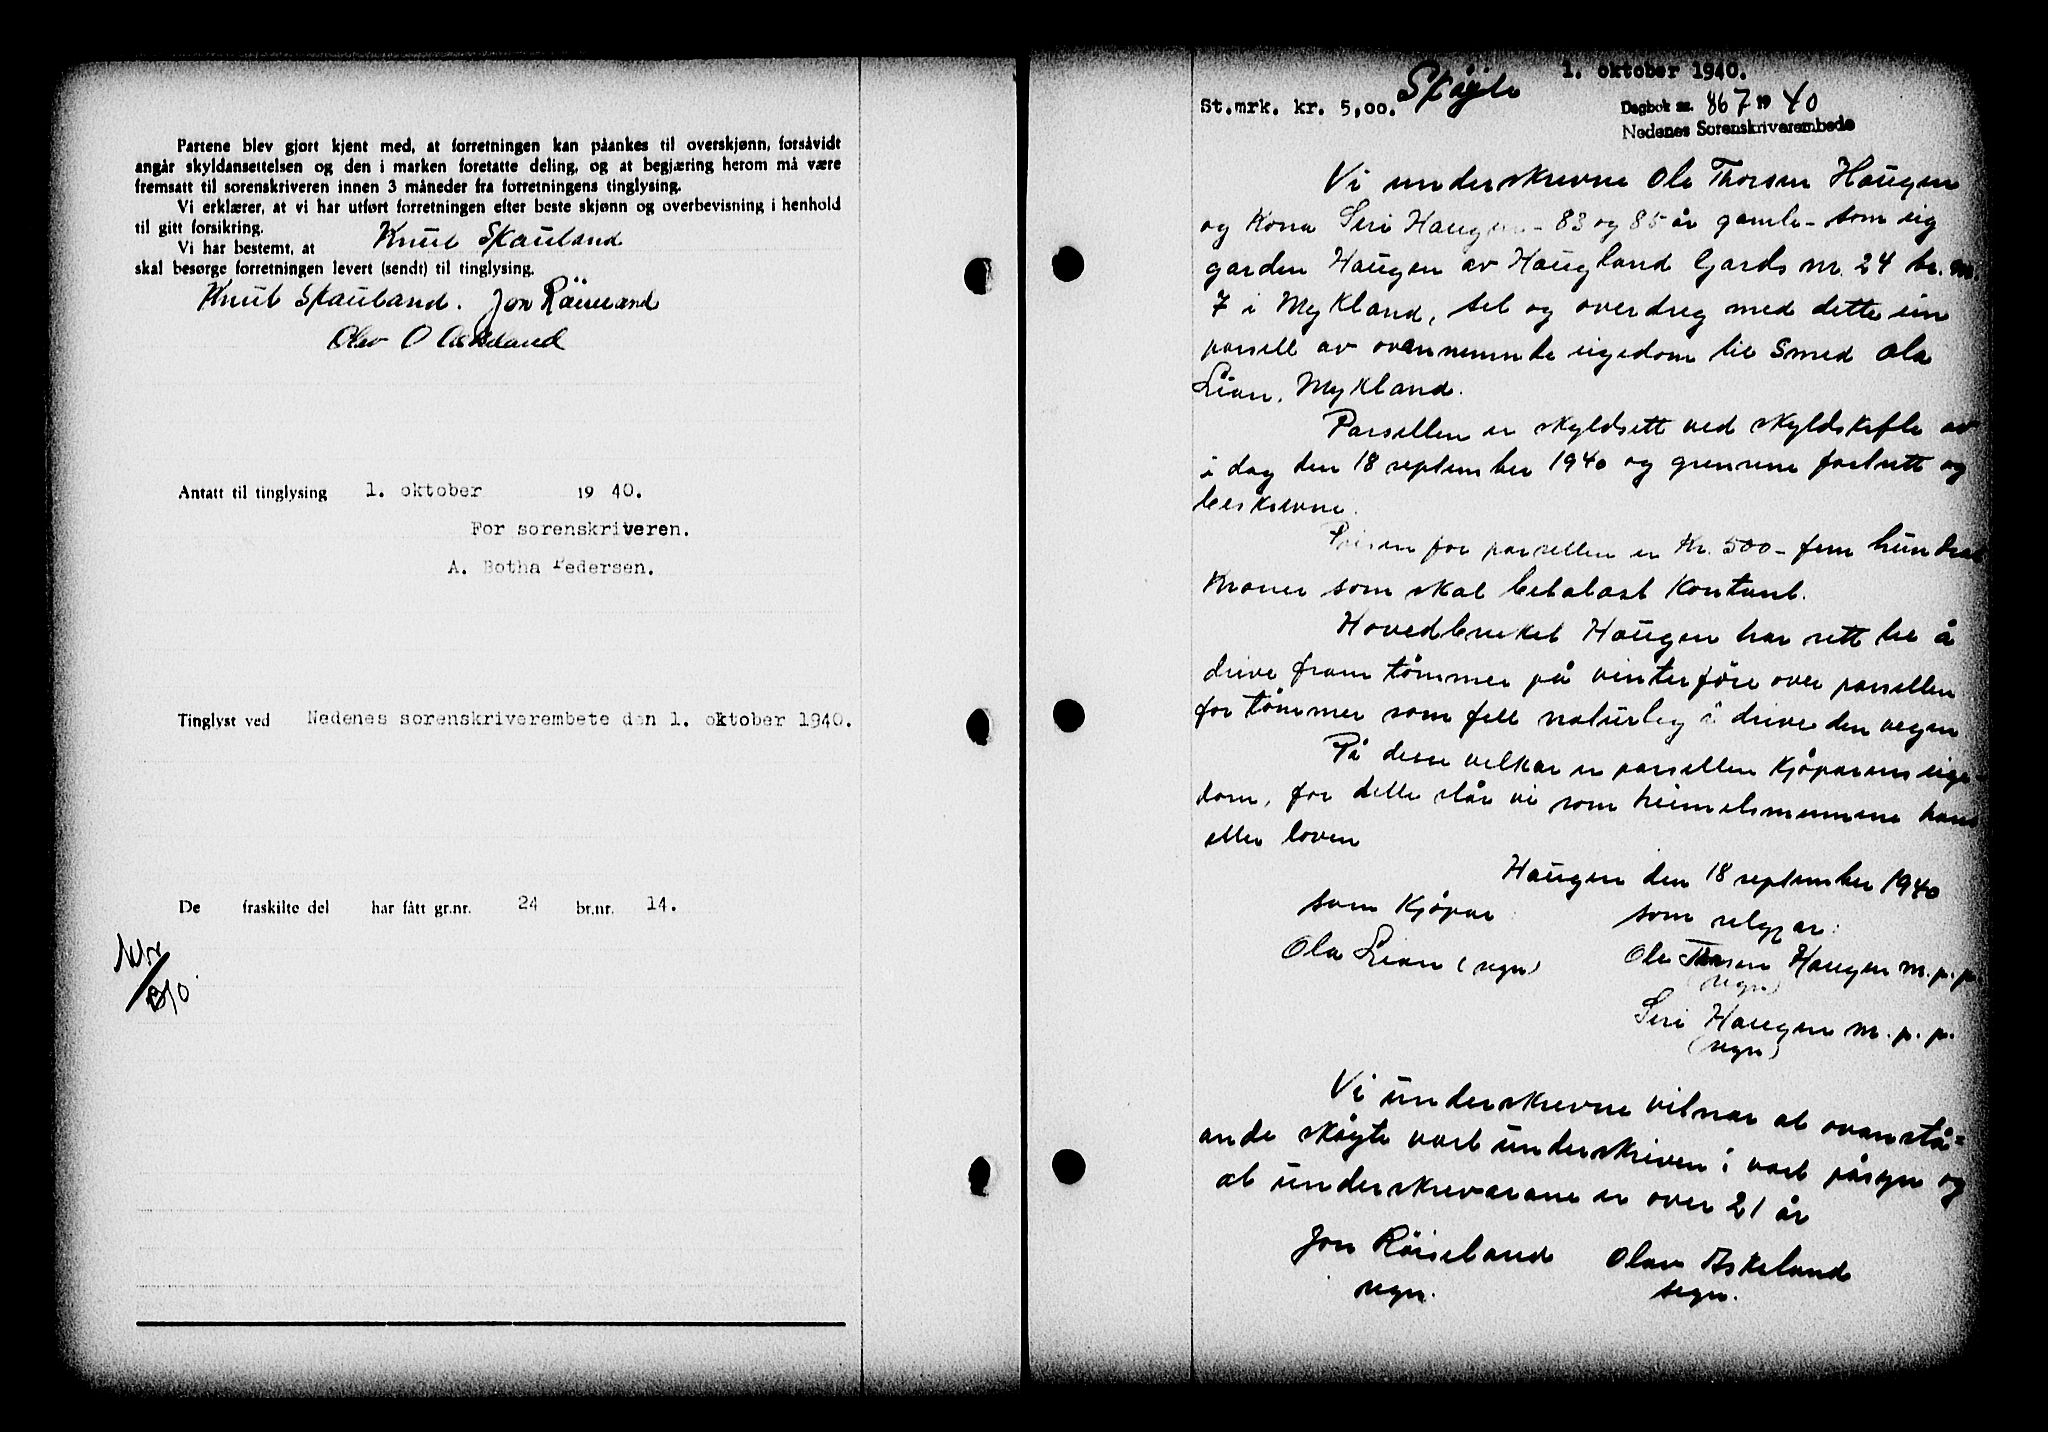 Partene blev gjort kjent med, at forretningen kan påankes til overskjønn, forsåvidt
angår skyldansettelsen og den i marken foretatte deling, og at begjæring herom må være
fremsatt til sorenskriveren innen 3 måneder fra forretningens tinglysing.
Vi erklærer, at vi har utført forretningen efter beste skjønn og overbevisning i henhold
til gitt forsikring.
Vi har bestemt, at Knut Skauland
skal besørge forretningen levert (sendt) til tinglysing.
Knut Skauland. Jon Röiseland
Olav O Askeland
Antatt til tinglysing 1. oktober 19 40.
For sorenskriveren.
A. Botha Pedersen.
Tinglyst ved Nedenes sorenskriverembete den 1. oktober 1940.
De fraskilte del har fått gr.nr. 24 br.nr. 14.
1. oktober 1940.
St.mrk. kr. 5,00. Skøyte
Dagbok nr. 867 19 40
Nedenes Sorenskriverembede
Vi underskrevne Ole Thorsen Haugen
og Kona Siri Haugen - 83 og 85 år gamle - som eig
garden Haugen av Haugland Gards nr. 24 br. nr.
7 i Mykland, sel og overdreg med dette ein
parsell av ovannemnde eigedom til Smed Ola
Lian, Mykland.
Parsellen er skyldsett ved skyldskifte av
i dag den 18 september 1940 og grensene fastsett og
beskrevne.
Prisen for parsellen er Kr. 500 - fem hundrad
Kroner som skal betalast Kontant.
Hovedbruket Haugen har rett til å
drive fram tømmer på vinterføre over parsellen
for tømmer som fell naturleg å drive den vegen
På desse vilkår er parsellen Kjøparens eige-
dom, for dette står vi som heimelsmennene hans
etter loven
Haugen den 18 september 1940
som Kjøpar som seljar:
Ola Lian (sign) Ole Thorsen Haugen m.p.p.
(sign)
Siri Haugen m.p.p.
(sign)
Vi underskrevne vitnar at ovanstå=
ande skøyte vart underskriven i vårt påsyn og
at underskrivarane er over 21 år
Jon Röiseland Olav Askeland
sign. sign.